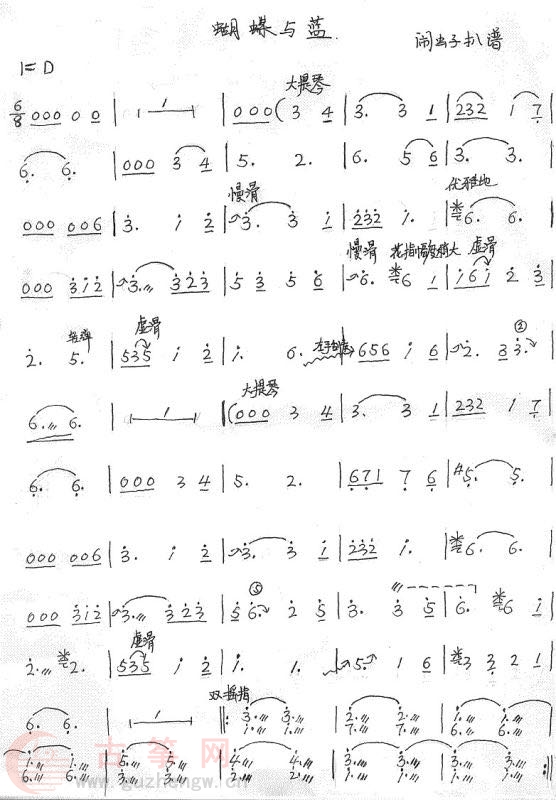 蝴蝶与蓝. 闹虫子扒谱
1=D
大提琴
6/8 000 0 0 | 1 | 000 (3 4 | 3. 3 1 | 232 1 7 |
6. 6. | 000 3 4 | 5. 2. | 6. 5 6 | 3. 3. |
慢滑 优雅地
000 006 | 3. i 2 | 3. 3 i | 232 i. | 6. 6. |
慢滑 花指幅度稍大 虚滑
000 312 | 3. 323 | 5 3 5 6 | 6. 6 1 | i6i 2 3 |
虚滑 ②
2. 5. | 535 i 2 | i. 6. | 656 i 6 | 2. 3 3. |
大提琴
6. 6. | 1 | (000 3 4 | 3. 3 1 | 232 1 7 |
6. 6. | 000 3 4 | 5. 2. | 671 7 6 | #5. 5. |
000 006 | 3. i 2 | 3. 3 i | 232 i. | 6. 6. |
⑤
000 312 | 3. 323 | 5 6. 2 5 | 3. 3 5 | 6. 6 i |
虚滑
2. 2. | 535 i 2 | i. 1. | 5. 1 6 | 3 3 2 1 |
双摇指
6. 6. | 1 |: 3. 3. | 2. 2. | 1. 1. |
1. 1. 7. 7. 6. 6.
1. 1. | 5. 5. | 4. 4. | 3. 3. | 3. 3. :|
6. 6. 3. 3. 2. 2. 1. 1. 1. 1.
古筝网
www.guzhengw.cn